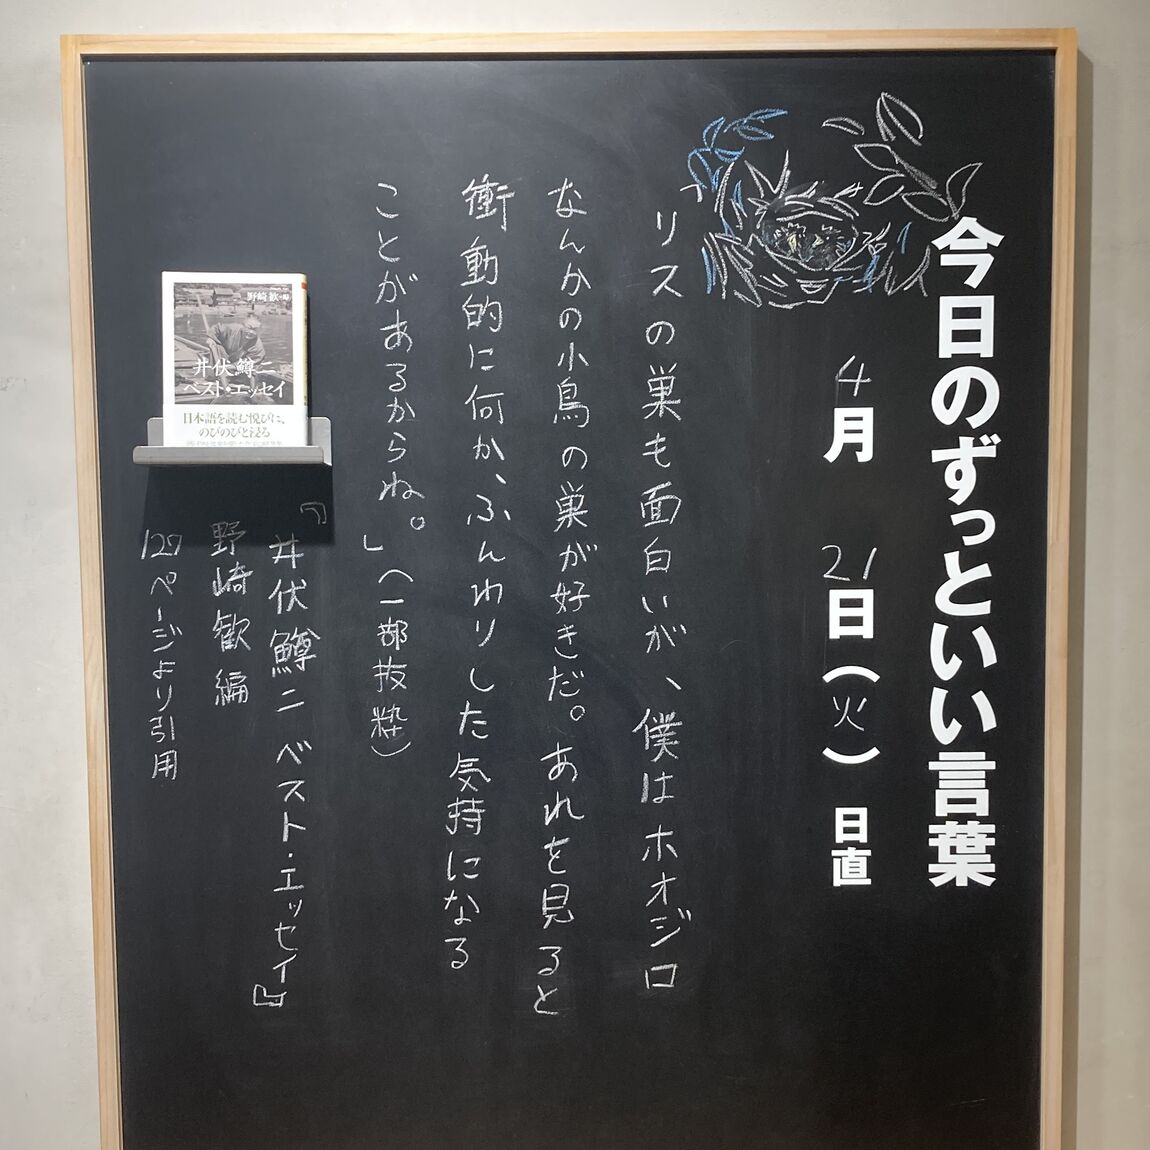 今日のずっといい言葉
4月21日(火) 日直
「リスの巣も面白いが、僕はホオジロ
なんかの小鳥の巣が好きだ。あれを見ると
衝動的に何か、ふんわりした気持になる
ことがあるからね。」(一部抜粋)
『井伏鱒二ベスト・エッセイ』
野崎歓編
127ページより引用
野崎歓・編
井伏鱒二
ベスト・エッセイ
日本語を読む悦びに、
のびのびと浸る